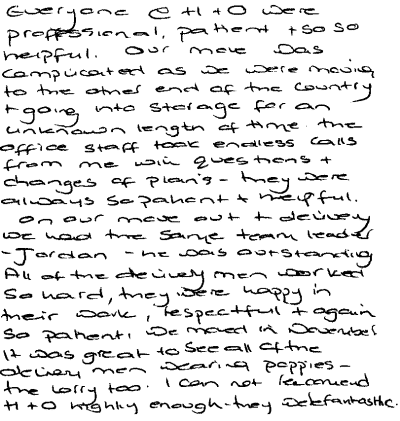 Everyone @ H + O were
professional, patient + so so
helpful. Our move was
complicated as we were moving
to the other end of the country
+ going into storage for an
unknown length of time. the
office staff took endless calls
from me with questions +
changes of plans - they were
always so patient + helpful.
On our move out + delivery
we had the same team leader
- Jordan - he was outstanding
All of the delivery men worked
so hard, they were happy in
their work, respectful + again
so patient. We moved in November
It was great to see all of the
delivery men wearing poppies -
the lorry too. I can not recommend
H + O highly enough - they were fantastic.